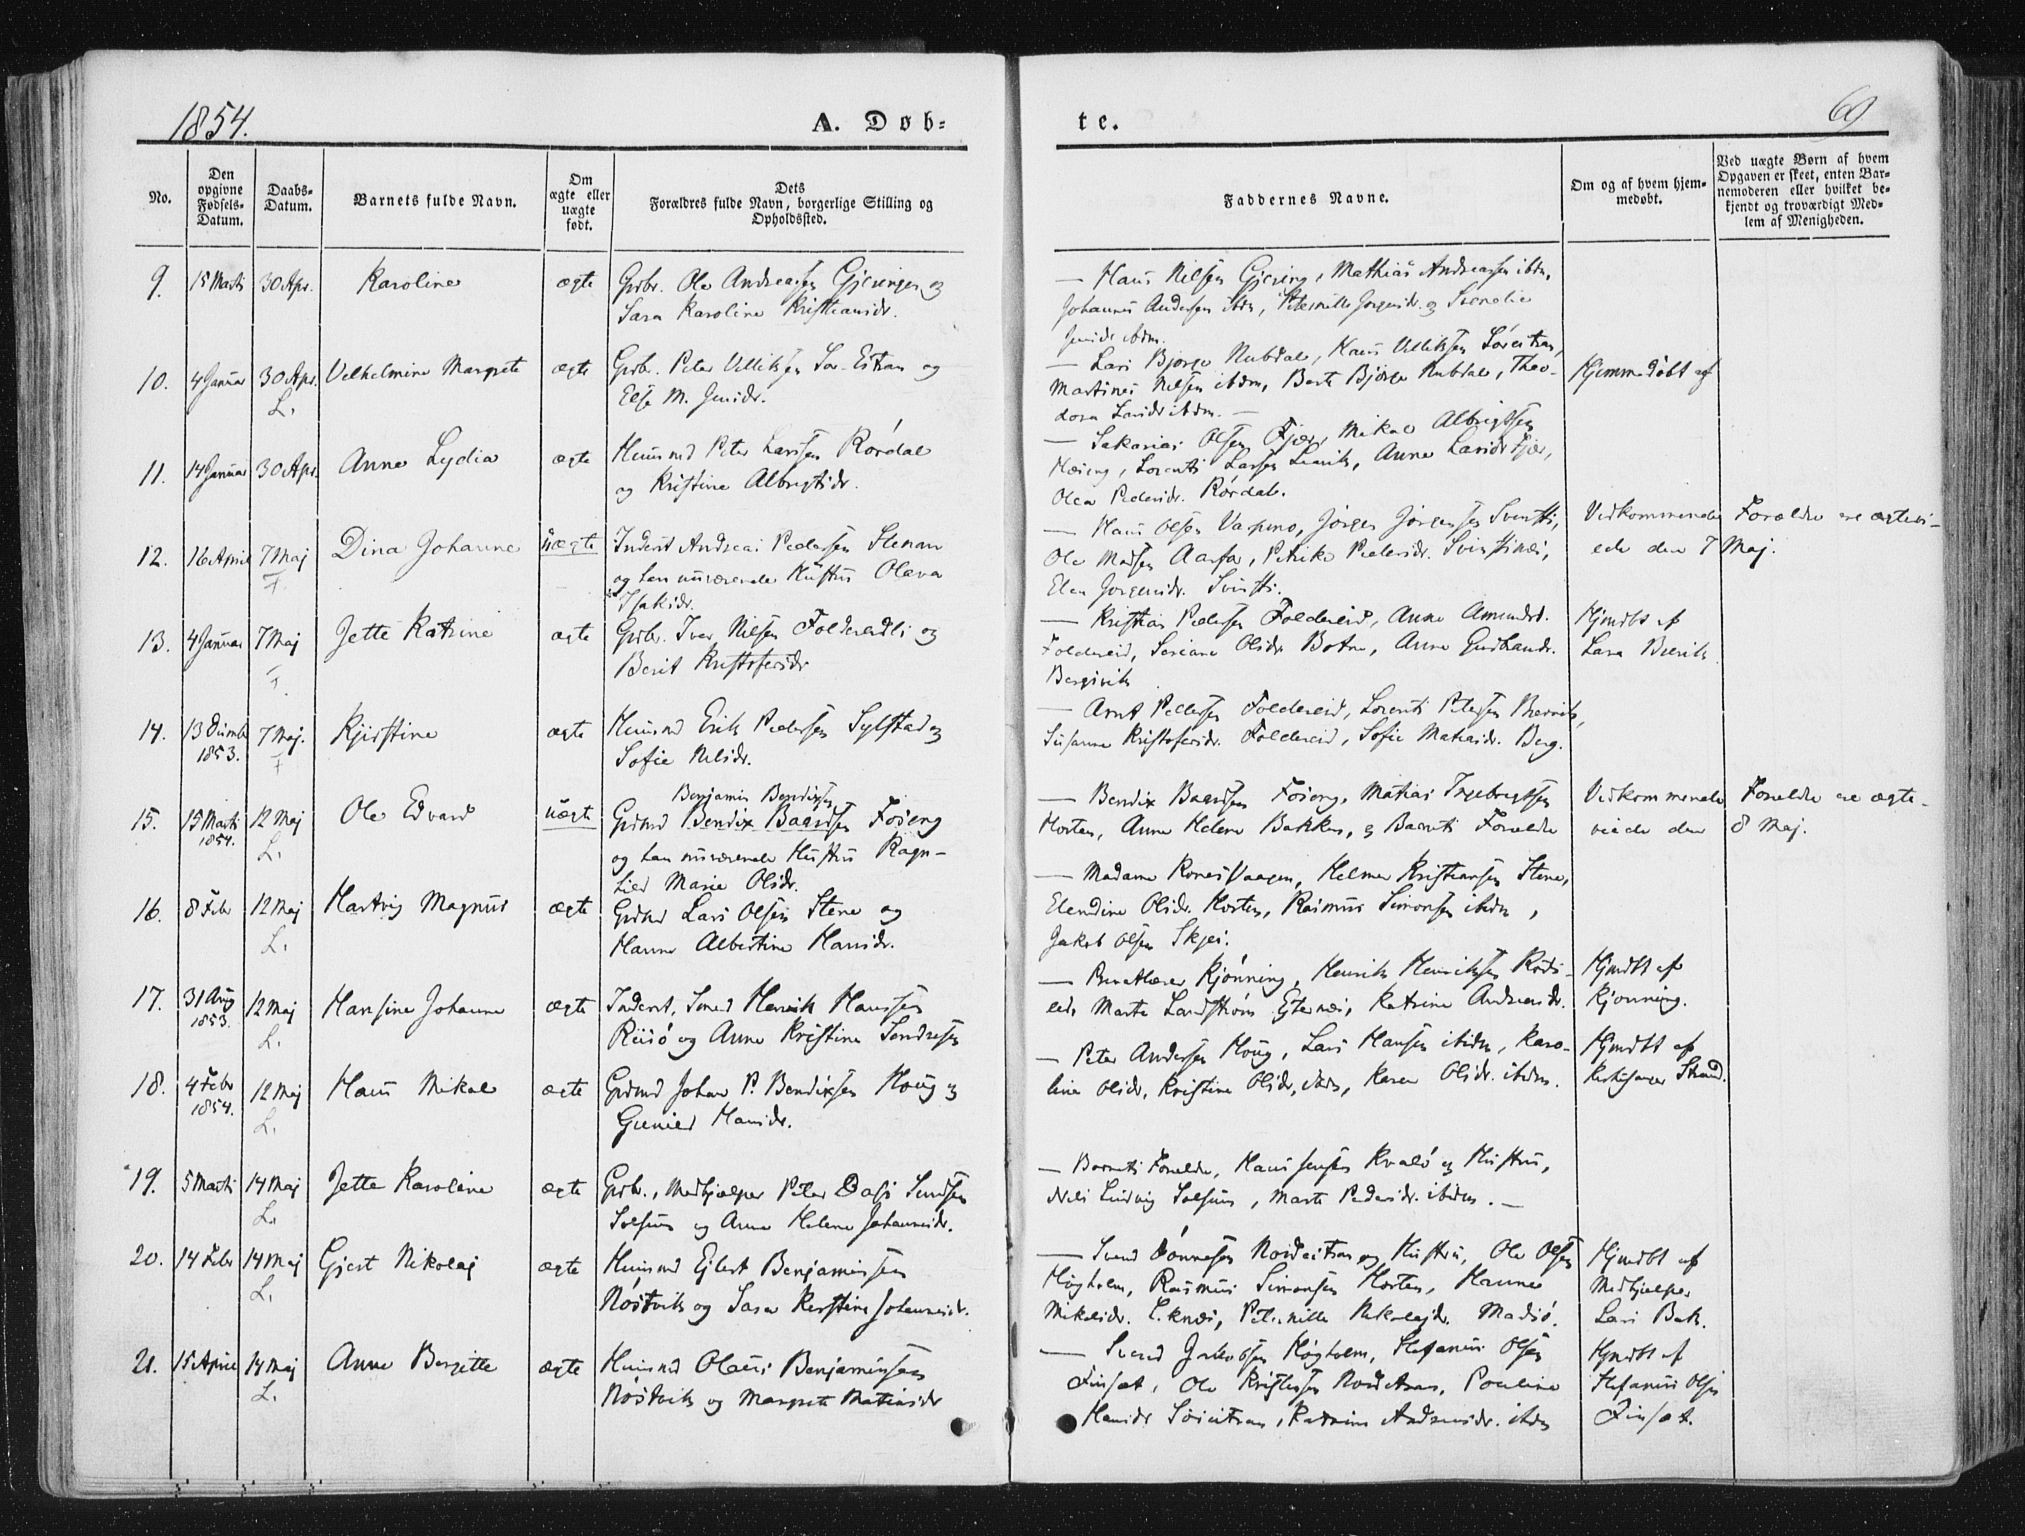 1854.
A. Døb=
te.
69
No.
Den opgivne Fødsels-Datum.
Daabs-Datum.
Barnets fulde Navn.
Om ægte eller uægte født.
Dets Forældres fulde Navn, borgerlige Stilling og Opholdssted.
Faddernes Navne.
Om og af hvem hjemmedøbt.
Ved uægte Børn af hvem Opgaven er skeet, enten Barnemoderen eller hvilket bekjendt og troværdigt Medlem af Menigheden.
9. 15 Marts 30 Apr. Karoline ægte Grbr. Ole Andreassen Gjeringen og
Sara Karoline Kristiansdr.
— Hans Nilsen Gjering, Mathias Andreassen ibdm,
Johannes Andersen ibdm, Peternille Jørgensdr. og
10. 4 Januar 30 Apr. Vilhelmine Margrete ægte Grbr. Peter Villiksen Sør-Eitran og
L.
Else M. Jensdr.
— Lars Bjørgo Nubdal, Hans Villiksen Søreitran,
Martines Nilsen ibdm, Berte Bjørgo Nubdal, Theo-
dora Larsdr ibdm. —
Hjemmedøbt af
11. 14 Januar 30 Apr. Anne Lydia ægte Huusmd Peter Larsen Rørdal
og Kristine Albregtsdr.
— Sakarias Olsen Fjær, Mikal Albrigtsen
Lorents Larsen Anne Larsdr Fjær,
Olea Pedersdr. Rørdal.
12. 16 April 7 Maj Dina Johanne uægte Inderst Andreas Pedersen Stenan
F.
og han nuværende Hustru Olava
Isaksdr.
— Hans Olsen Jørgen Jørgensen
Ole Madsen Aarfor, Petrike Pedersdr.
Elen Jørgensdr.
Vedkommende Forældre ere ægtevi-
ede den 7 Maj.
13. 4 Januar 7 Maj Jette Katrine ægte Grbr. Iver Nilsen Foldereidli og
F.
Berit Kristofersdr
— Kristian Pedersen Foldereid, Anne Amundsd.
Foldereid, Seriane Olsdr Botne, Anne Gudbrandr.
Bergsvik
Hjmdbt af
Lara
14. 13 Decembr 7 Maj. Kjerstine ægte Huusmd Erik Pedersen Sylstad og
1853.
F
Sofie Nilsdr.
— Arnt Pedersen Foldereid, Lorents Petersen
Susanne Kristofersdr. Foldereid, Sofie Matiasdr. Berg.
Benjamin Bendixsen
15. 15 Marts 12 Maj Ole Edvard uægte Grdmd Bendix Baardsen Føieng
1854.
L.
og han nuværende Hustru Ragn-
hild Marie Olsdr.
— Bendix Baardsen Føieng, Matias Ingebrigtsen
Horten, Anne Helene Bakken, og Barnets Forældre
Vedkommende Forældre ere ægte-
viede den 8 Maj.
16. 8 Febr 12 Maj Hartvig Magnus ægte Grdmd Lars Olsen Stene og
L.
Hanne Albertine Hansdr.
— Madame Helmer Kristiansen Stene,
Elendine Olsdr. Horten, Rasmus Simonsen ibdm,
Jakob Olsen Skjei.
17. 31 Aug 12 Maj Hansine Johanne ægte Inderst, Smed Henrik Hansen
1853.
L.
Riisø og Anne Kristine Sendresen
— Kjønning, Henrik Henriksen
Marte Landstrøm Katrine Andreasdr.
Hjmdbt af
Kjønning.
18. 4 Febr 12 Maj Hans Mikal ægte Grdmd Johan P. Bendixsen Houg og
1854.
L.
Hansdr.
— Peter Andersen Houg, Lars Hansen ibidm, Karo-
line Olsdr, Kristine Olsdr, ibdm, Karen Olsdr. ibidm.
Hjmdbt af
Kirkesanger Strand.
19. 5 Marts 14 Maj Jette Karoline ægte Grbr., Medhjælper Peter Dass Sendsen
L.
Solsem og Anne Helene Johannesdr.
— Barnets Forældre, Hans Jensen Kvalø og Hustru,
Nils Ludvig Solsem, Marte Pedersdr. ibidm. —
20. 14 Febr 14 Maj Gjert Nikolaj ægte Huusmd Ejlert Benjaminsen
L.
Nøstvik og Sara Kerstine Johannesdr.
— Svend Tønnesen Nordeitran og Hustru, Ole Olsen
Høgholm, Rasmus Simonsen Horten, Hanne
Mikalsdr. Eknæs, Peternille Nikolajdr. Madsø.
Hjmdbt af
Medhjælper
Lars Bak.
21. 15 April 14 Maj Anne Bergitte ægte Huusmd Olaus Benjaminsen
L.
Nøstvik og Margrete Matiasdr
— Svend Jakobsen Høgholm, Stefanus Olsen
Finsæt, Ole Kristensen Nordeitran, Pauline
Hansdr Søreitran, Katrine Andreasdr. ibdm
Hjmdbt af
Stefanus Olsen
Finsæt.